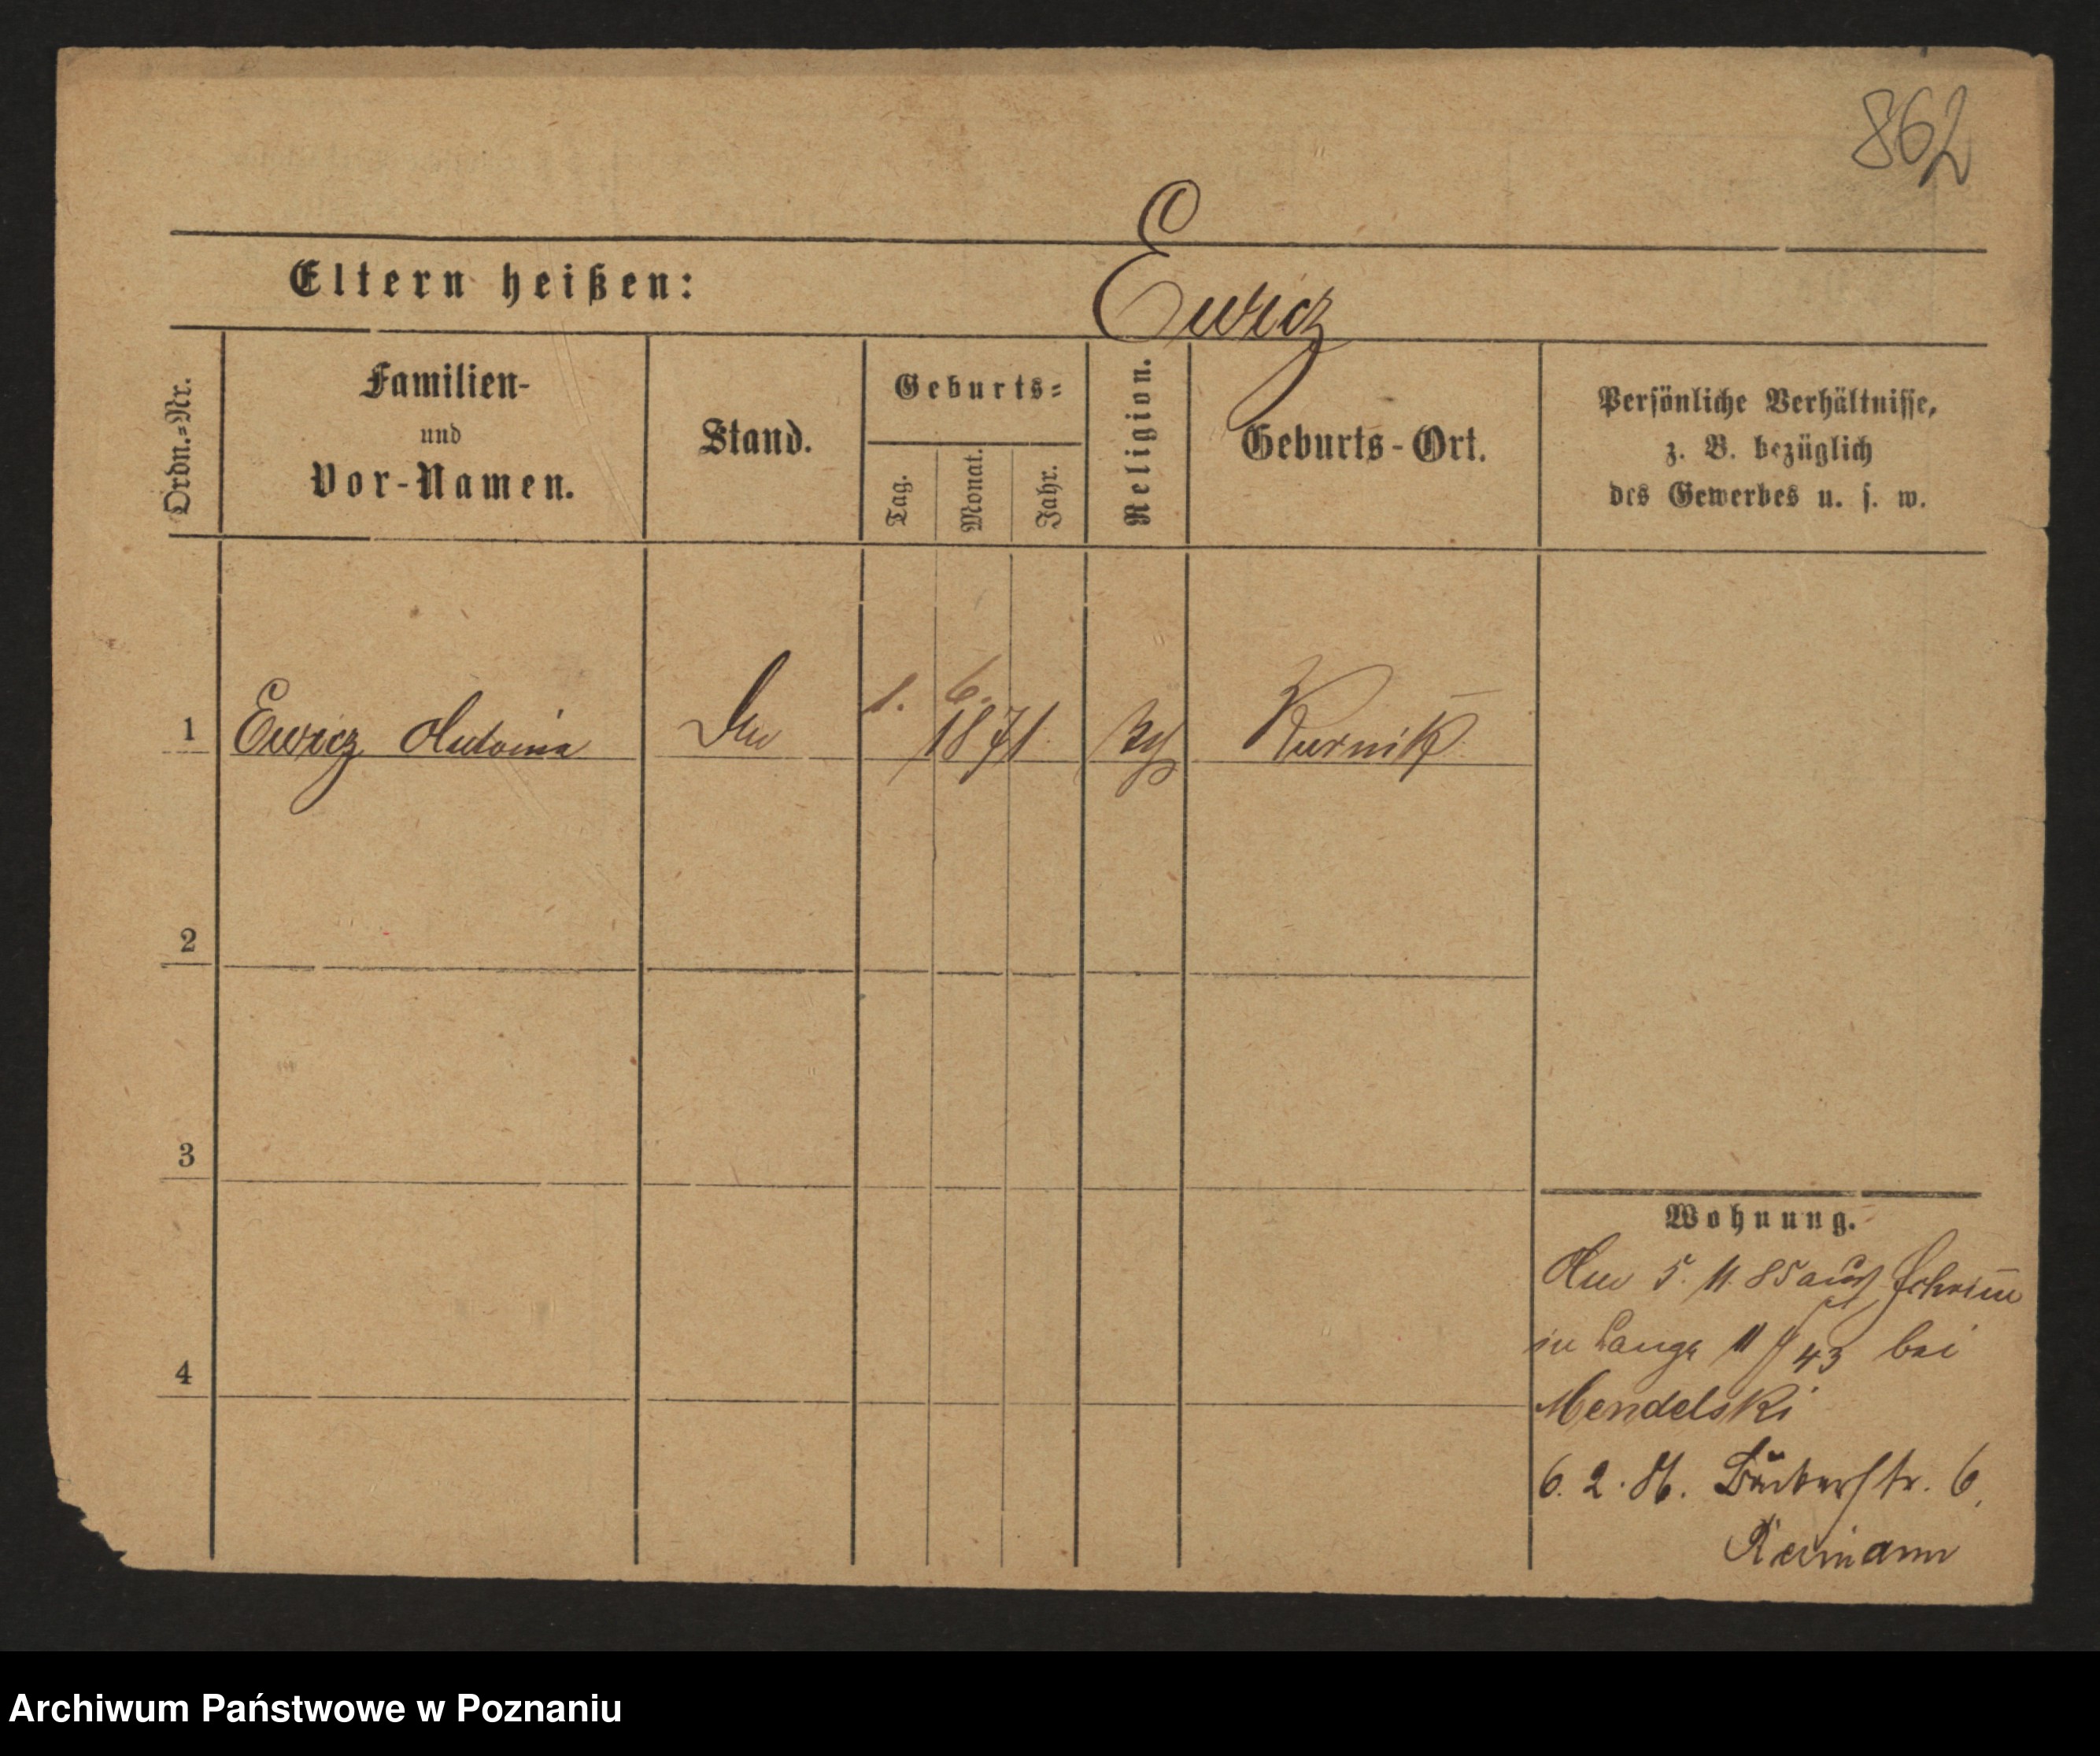 862
Ewicz
Eltern heißen:
Ordn.=Nr.
Familien-
und
Vor-Namen.
Stand.
Geburts=
Tag.
Monat.
Jahr.
Religion.
Geburts-Ort.
Persönliche Verhältnisse,
z. B. bezüglich
des Gewerbes u. s. w.
1 Ewicz Antonia 1. 6. 1871 Kurnik
2
3
4
Wohnung.
5. 11. 85 aus Schrimm
in Lange 11/43 bei
Mendelski
6. 2. 86. 6.
Reimann
Archiwum Państwowe w Poznaniu